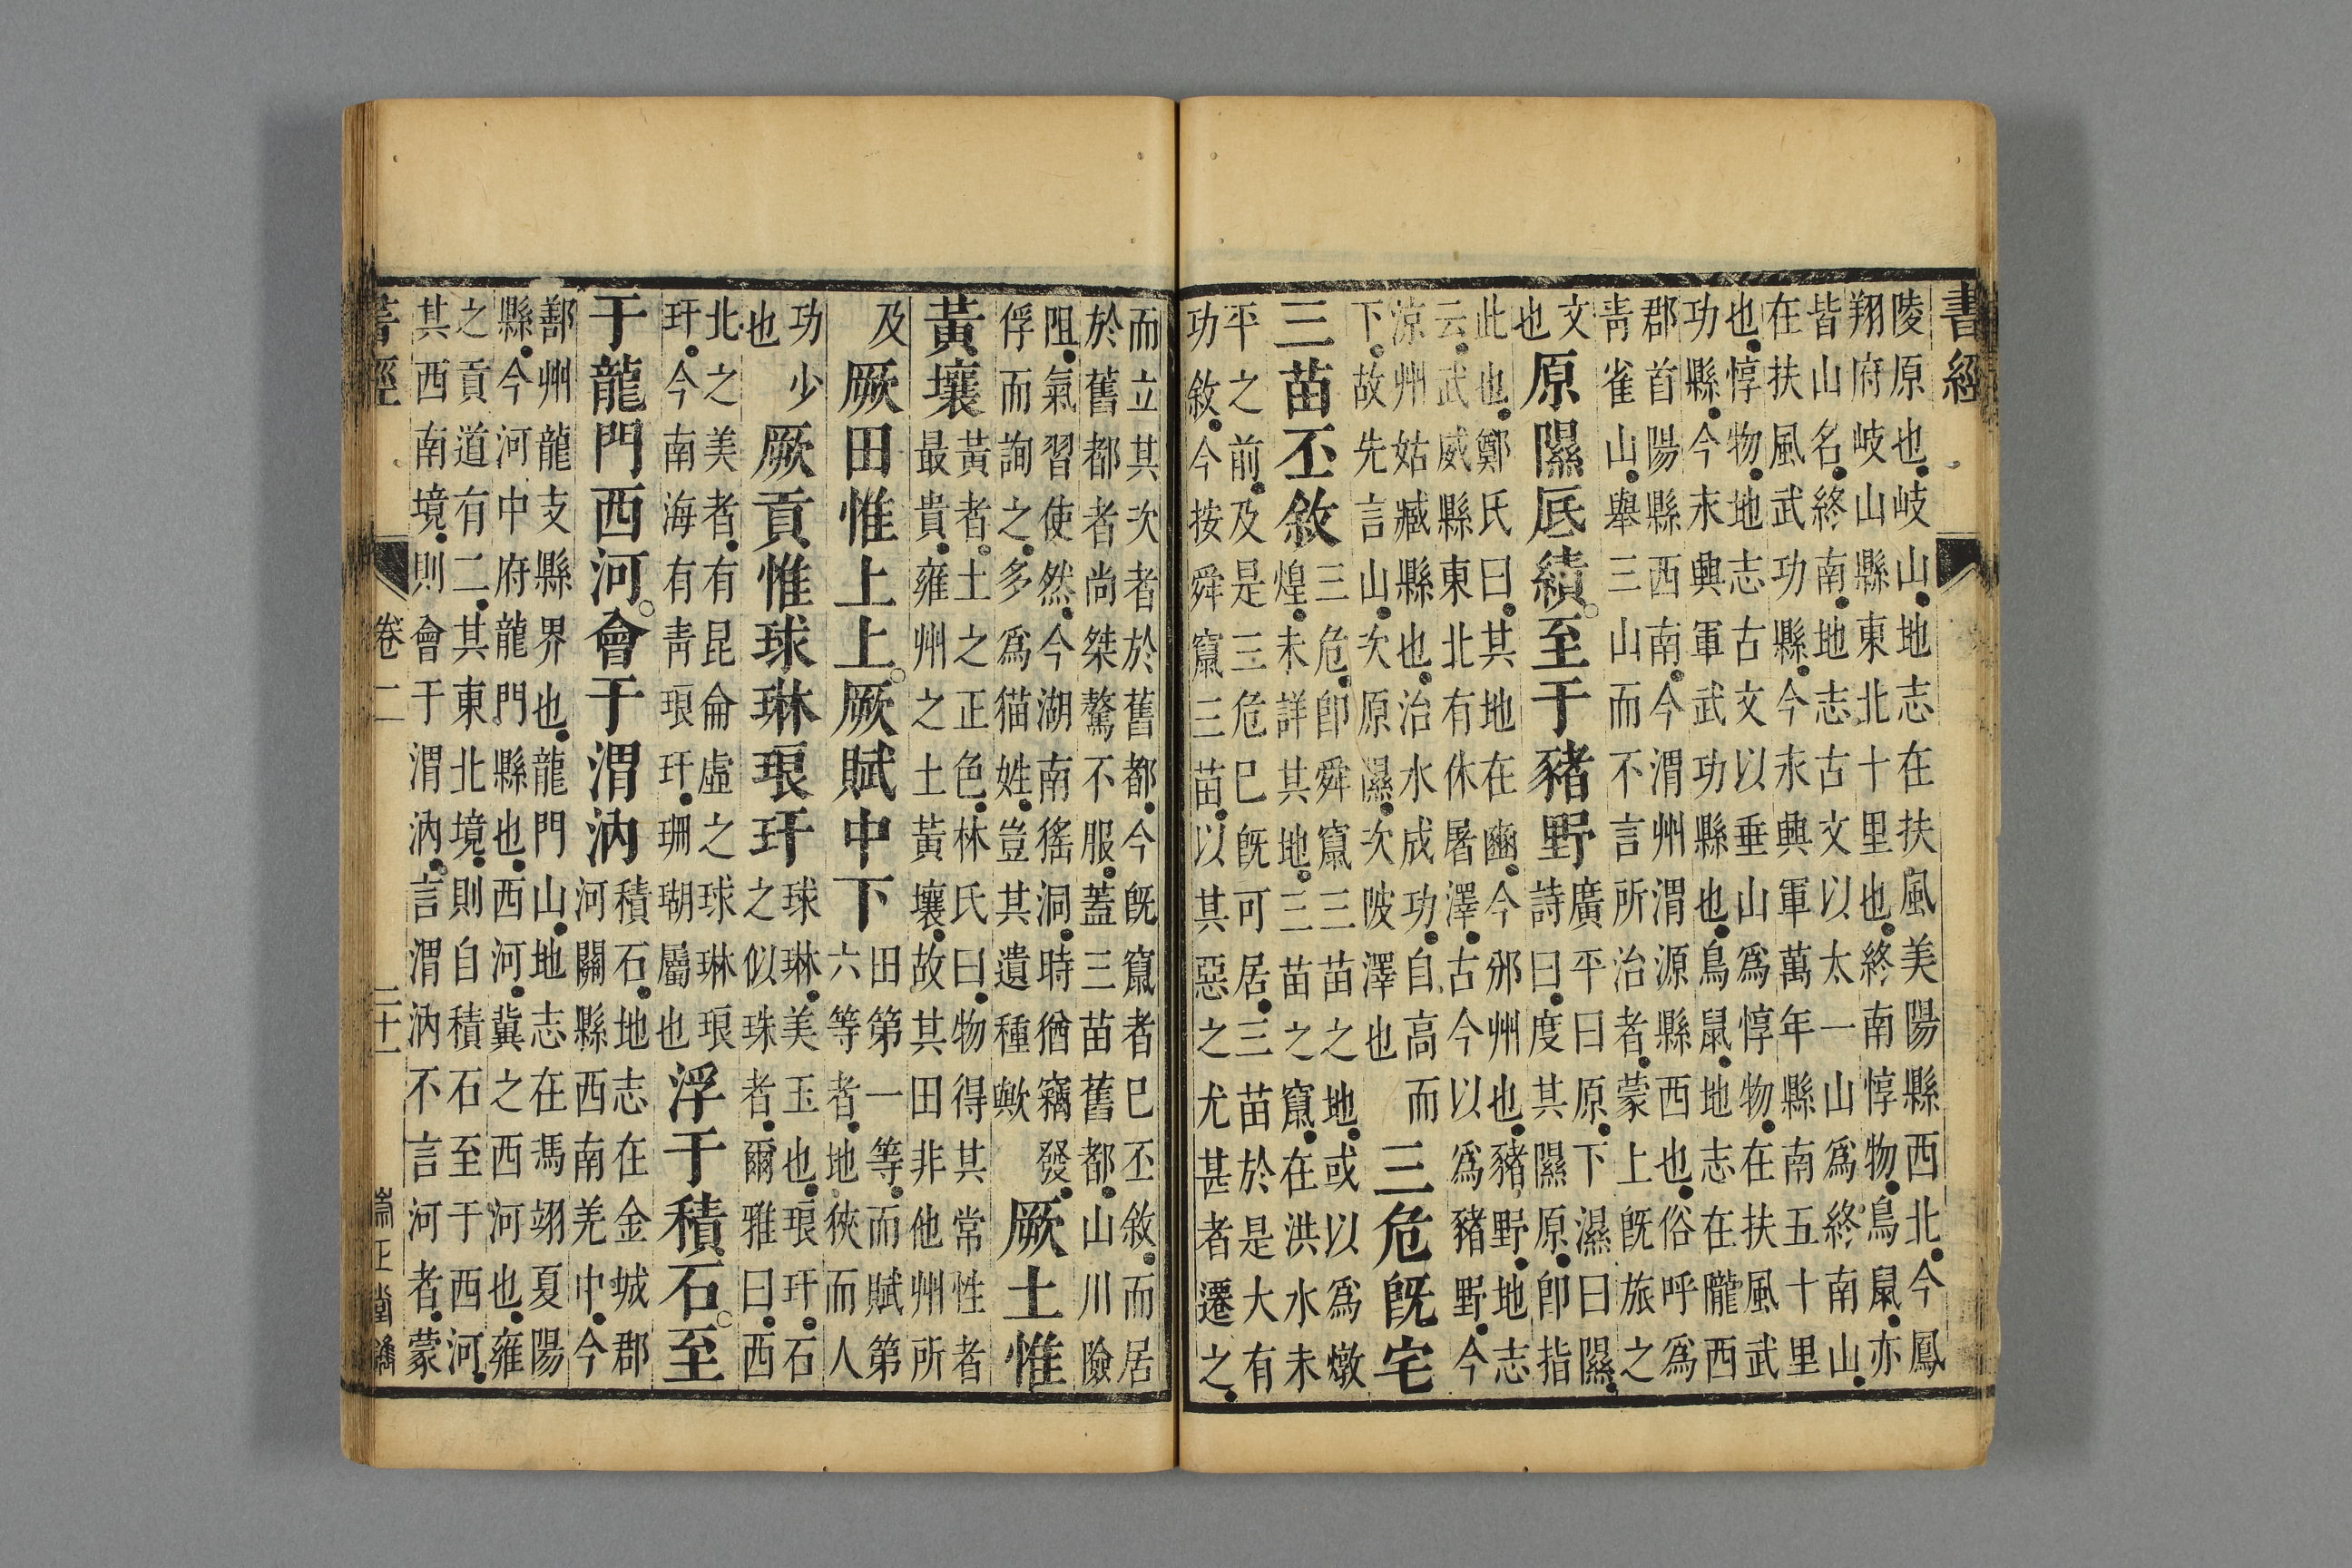 書經
陵原也岐山地志在扶風美陽縣西北今鳳
翔府岐山縣東北十里也終南惇物鳥鼠亦
皆山名終南地志古文以太一山爲終南山
在扶風武功縣今永興軍萬年縣南五十里
也惇物地志古文以垂山爲惇物在扶風武
功縣今永興軍武功縣也鳥鼠地志在隴西
郡首陽縣西南今渭州渭源縣西也俗呼爲
青雀山舉三山而不言所治者蒙上旣旅之
文也
原隰厎績。至于豬野
廣平曰原下濕曰隰
詩曰度其隰原卽指
此也鄭氏曰其地在豳今邠州也豬野地志
云武威縣東北有休屠澤古今以爲豬野今
涼州姑臧縣也治水成功自高而
下故先言山次原隰次陂澤也
三危旣宅
三苗丕敘
三危卽舜竄三苗之地或以爲燉
煌未詳其地三苗之竄在洪水未
平之前及是三危已旣可居三苗於是大有
功敘今按舜竄三苗以其惡之尤甚者遷之
而立其次者於舊都今旣竄者已丕敘而居
於舊都者尚桀驁不服蓋三苗舊都山川險
阻氣習使然今湖南猺洞時猶竊發
俘而詢之多爲猫姓豈其遺種歟
厥土惟
黃壤
黃者土之正色林氏曰物得其常性者
最貴雍州之土黃壤故其田非他州所
及
厥田惟上上。厥賦中下
田第一等而賦第
六等者地狹而人
功少
也
厥貢惟球琳琅玕
球琳美玉也琅玕石
之似珠者爾雅曰西
北之美者有昆侖虛之球琳琅
玕今南海有青琅玕珊瑚屬也
浮于積石。至
于龍門西河。會于渭汭
積石地志在金城郡
河關縣西南羌中今
鄯州龍支縣界也龍門山地志在馮翊夏陽
縣今河中府龍門縣也西河冀之西河也雍
之貢道有二其東北境則自積石至于西河
其西南境則會于渭汭言渭汭不言河者蒙
書經 卷二 三十一